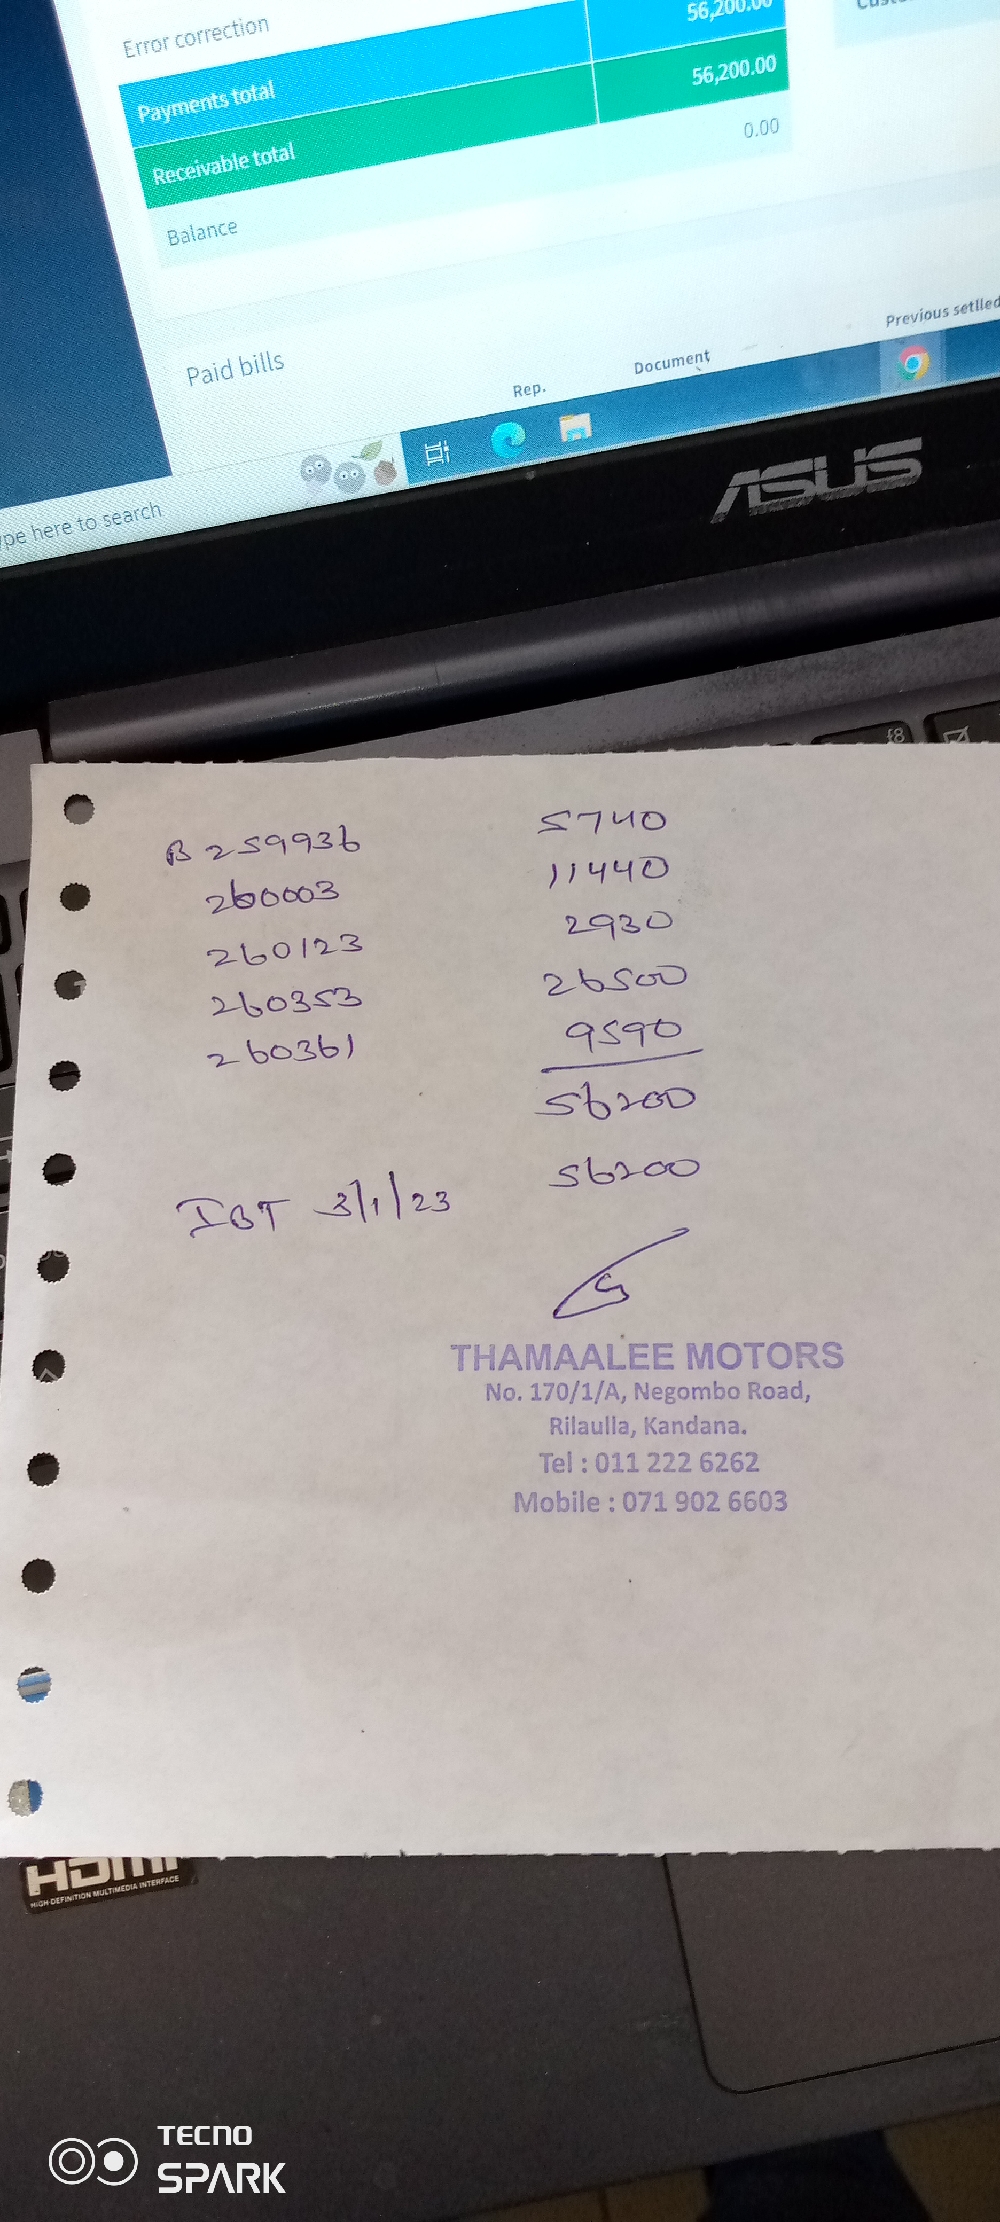 Error correction
56,200.00
Payments total
56,200.00
Receivable total
0.00
Balance
Paid bills
Rep.
Document
Previous setlled
pe here to search
ASUS
f8
B 259936 5740
260003 11440
260123 2930
260353 26500
260361 9590
56200
IBT 3/1/23 56200
THAMAALEE MOTORS
No. 170/1/A, Negombo Road,
Rilaulla, Kandana.
Tel : 011 222 6262
Mobile : 071 902 6603
HDMI
HIGH-DEFINITION MULTIMEDIA INTERFACE
TECNO
SPARK